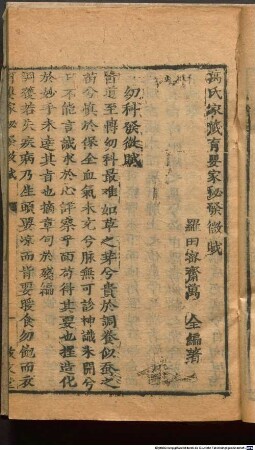 萬氏家藏育嬰家秘發微賦
羅田密齋萬 全編著
幼科發微賦
醫道至博幼科最難如草之芽兮貴於調養似蚕之
苗兮慎於保全血氣未充兮脉無可診神識未開兮
口不能言誠求於心詳察乎面苟得其要也捏造化
於妙手未達其旨也摘章句於殘編
洞㣲若失疾病乃生頭要凉而背要暖食勿飽而衣